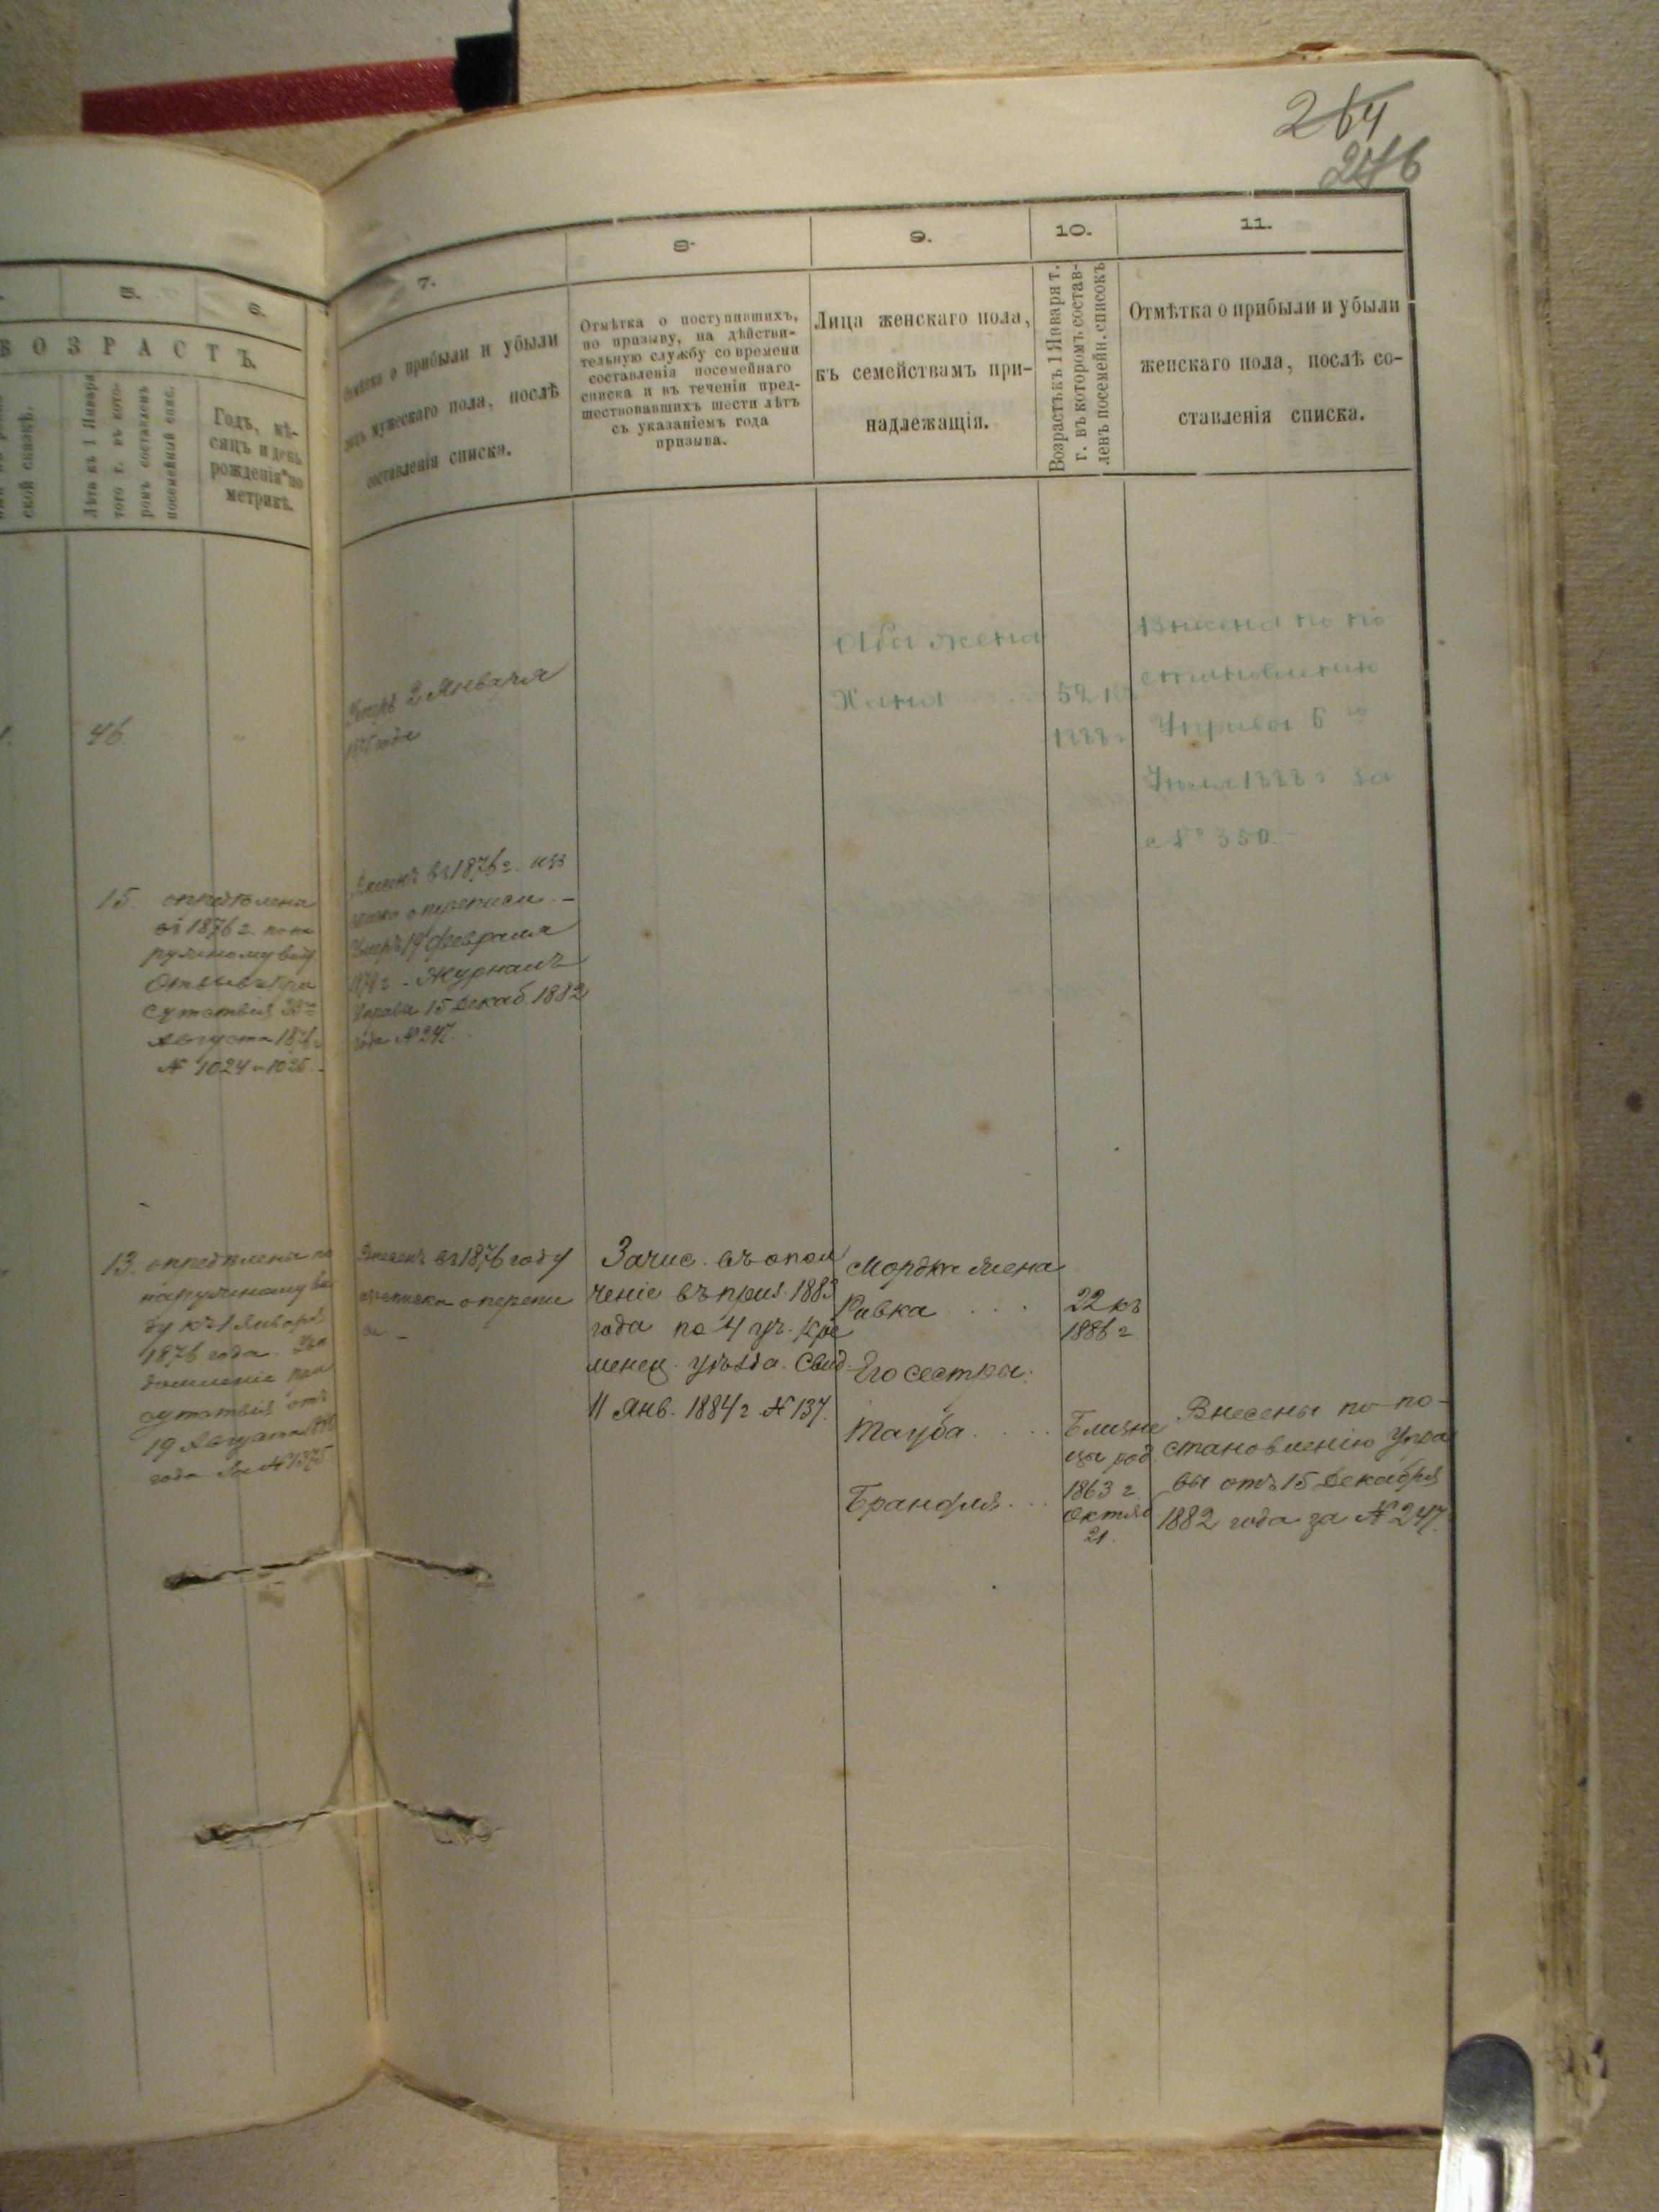 264
276
5.
6.
7.
8.
9.
10.
11.
ВОЗРАСТЪ.
ской сказкѣ.
Лѣта къ 1 Января
того г. въ кото-
ромъ составленъ
посемейный спис.
Годъ, мѣ-
сяцъ и день
рожденія по
метрикѣ.
Отмѣтка о прибыли и убыли
лицъ мужескаго пола, послѣ
составленія списка.
Отмѣтка о поступившихъ,
по призыву, на дѣйстви-
тельную службу со времени
составленія посемейнаго
списка и въ теченіи пред-
шествовавшихъ шести лѣтъ
съ указаніемъ года
призыва.
Лица женскаго пола,
къ семействамъ при-
надлежащія.
Возрастъ къ 1 Января т.
г. въ которомъ состав-
ленъ посемейн. списокъ
Отмѣтка о прибыли и убыли
женскаго пола, послѣ со-
ставленія списка.
46.
Умеръ 2 Января
года
жена
Хана
52 къ
1888 г
Внесена по по
становленію
Управы 6 го
1888 г за
№ 350.
15. опредѣлена
въ 1876 г. по на
ружному виду
Отзывъ При
сутствія
Августа 1876 г
№ 1024 и 1025.
Внесенъ въ 1876 г. изъ
списка о переписи.
Умеръ 19 Февраля
Журналъ
Управы 15 Декаб. 1882
года № 247.
13. опредѣлена по
наружному ви
ду къ 1 Января
1876 года. Увѣ
домленіе при
сутствія отъ
19 Августа
года за № 1375
Внесенъ въ 1876 году
изъ списка о перепи
си
Зачис. въ опол
ченіе въ приз. 1883
года по 4 уч. Кре
менец. уѣзда. Свид.
11 Янв. 1884 г № 137.
Мордка жена
Ривка
22 къ
1886 г.
Его сестры:
Тауба
Брандля
Близне
цы род.
1863 г.
Октяб
21.
Внесены по по-
становленію Упра
вы отъ 15 Декабря
1882 года за № 247.